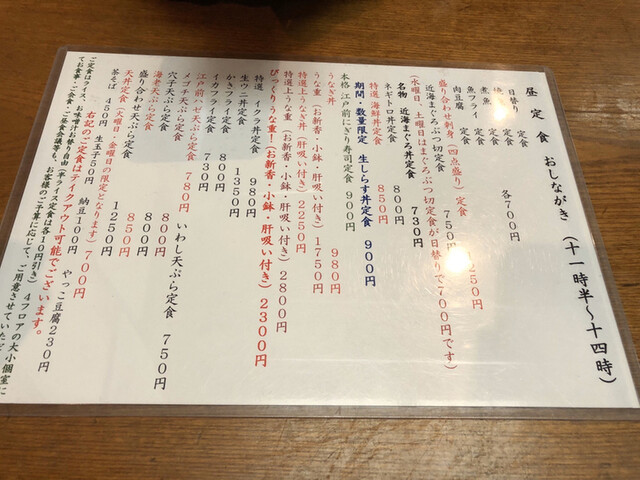 昼定食 おしながき (十一時半〜十四時)
日替り 定食
定食
煮魚 定食 各700円
魚フライ 定食
肉豆腐 定食
盛り合わせ刺身(四点盛り)定食 1250円
近海まぐろぶつ切定食 750円
(水曜日、土曜日はまぐろぶつ切定食が日替りで700円です)
名物 近海まぐろ丼定食 730円
ネギトロ丼定食 800円
特選 海鮮丼定食 850円
期間・数量限定 生しらす丼定食 900円
本格 江戸前にぎり寿司定食 900円
うなぎ丼 980円
うな重(お新香・小鉢・肝吸い付き)1750円
特選上うなぎ丼(肝吸い付き)2250円
特選上うな重(お新香・小鉢・肝吸い付き)2800円
びっくりうな重!(お新香・小鉢・肝吸い付き)2300円
特選 イクラ丼定食 980円
生ウニ丼定食 1350円
かきフライ定食 800円
イカフライ定食 730円
江戸前ハゼ天ぷら定食 780円
メゴチ天ぷら定食 いわし天ぷら定食 750円
穴子天ぷら定食 800円
海老天ぷら定食 800円
盛り合わせ天ぷら定食 850円
天丼定食(火曜日・金曜日の限定となります)700円 1250円
茶そば 450円 生玉子50円 納豆100円 やっこ豆腐230円
右記のご定食はテイクアウト可能でございます。
ご定食はライス、お味噌汁お替り自由(半ライス定食は各10円引き)4フロアの大小個室に
てお食事・ご会食・ご昼食会議等も、お客様のご予算に応じて、ご用意させていただ